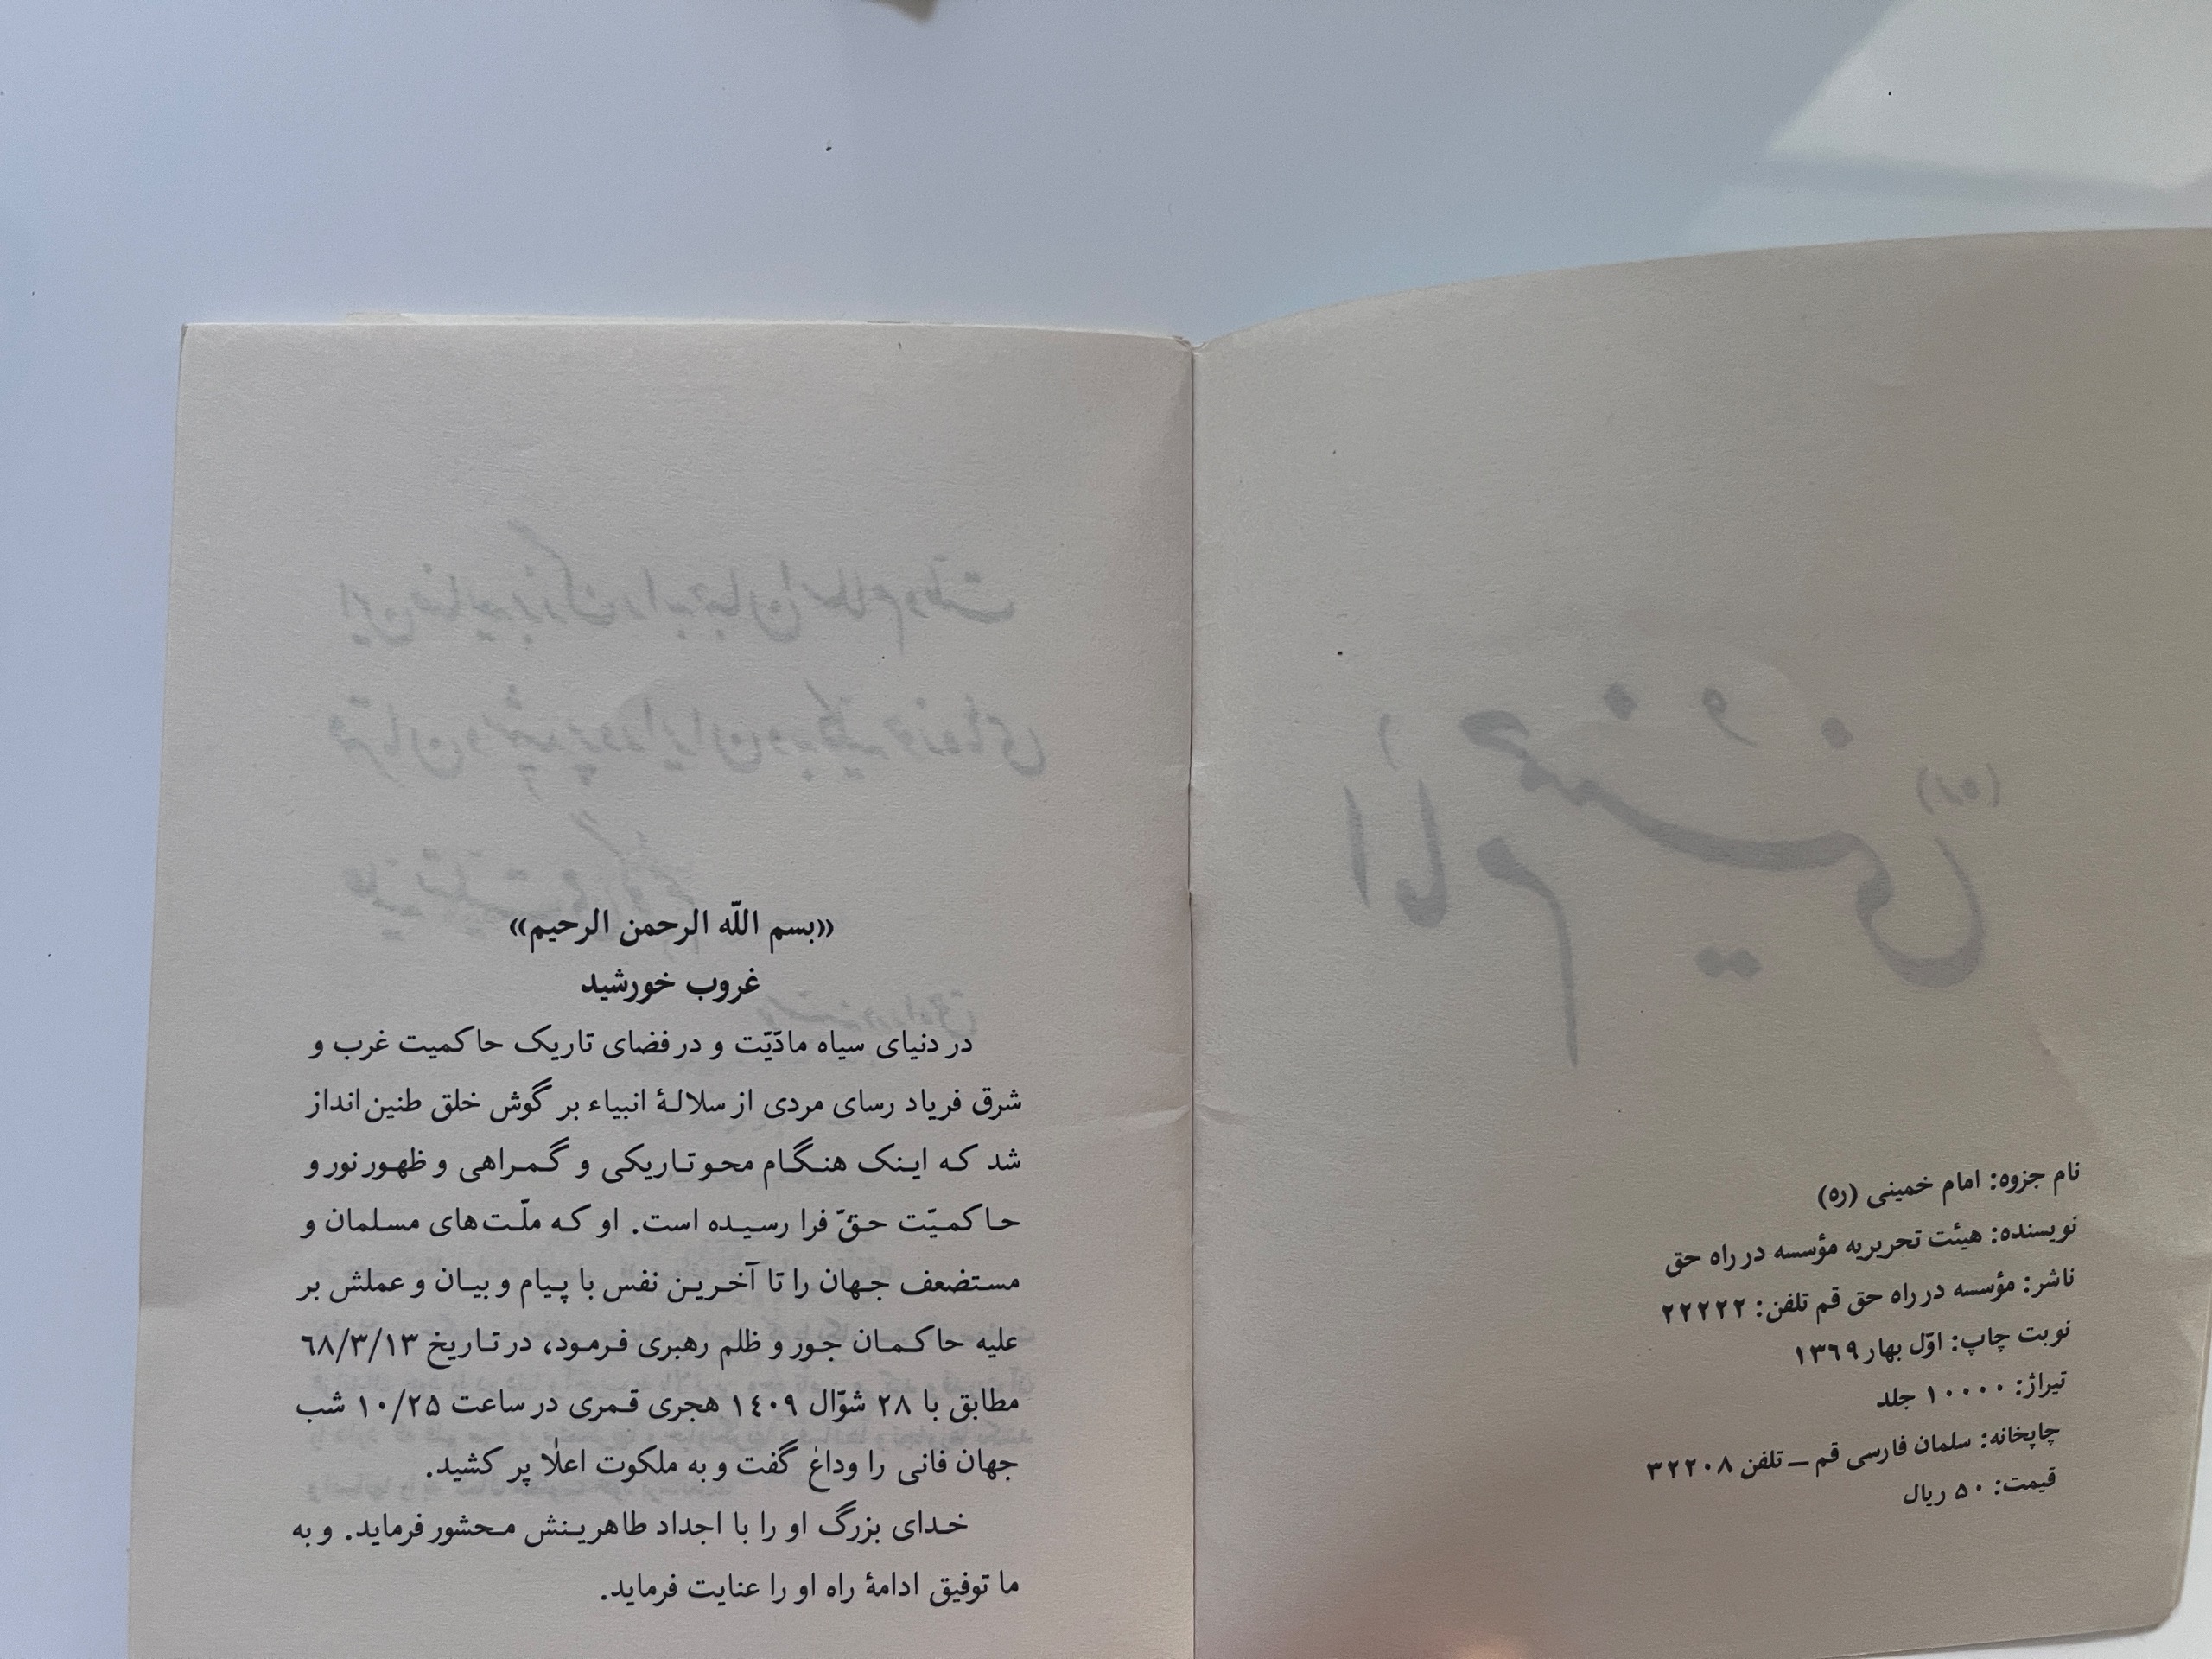 نام جزوه: امام خمینی (ره)
نویسنده: هیئت تحریریه مؤسسه در راه حق
ناشر: مؤسسه در راه حق قم تلفن: ۲۲۲۲۲
نوبت چاپ: اوّل بهار ۱۳٦۹
تیراژ: ۱۰۰۰۰ جلد
چاپخانه: سلمان فارسی قم ــ تلفن ۳۲۲۰۸
قیمت: ۵۰ ریال
«بسم اللّه الرحمن الرحیم»
غروب خورشید
در دنیای سیاه مادّیّت و در فضای تاریک حاکمیت غرب و
شرق فریاد رسای مردی از سلالهٔ انبیاء بر گوش خلق طنین انداز
شد که اینک هنگام محو تاریکی و گمراهی و ظهور نور و
حاکمیّت حقّ فرا رسیده است. او که ملّت‌های مسلمان و
مستضعف جهان را تا آخرین نفس با پیام و بیان و عملش بر
علیه حاکمان جور و ظلم رهبری فرمود، در تاریخ ٦۸/۳/۱۳
مطابق با ۲۸ شوّال ۱٤۰۹ هجری قمری در ساعت ۱۰/۲۵ شب
جهان فانی را وداع گفت و به ملکوت اعلٰا پر کشید.
خدای بزرگ او را با اجداد طاهرینش محشور فرماید. و به
ما توفیق ادامهٔ راه او را عنایت فرماید.